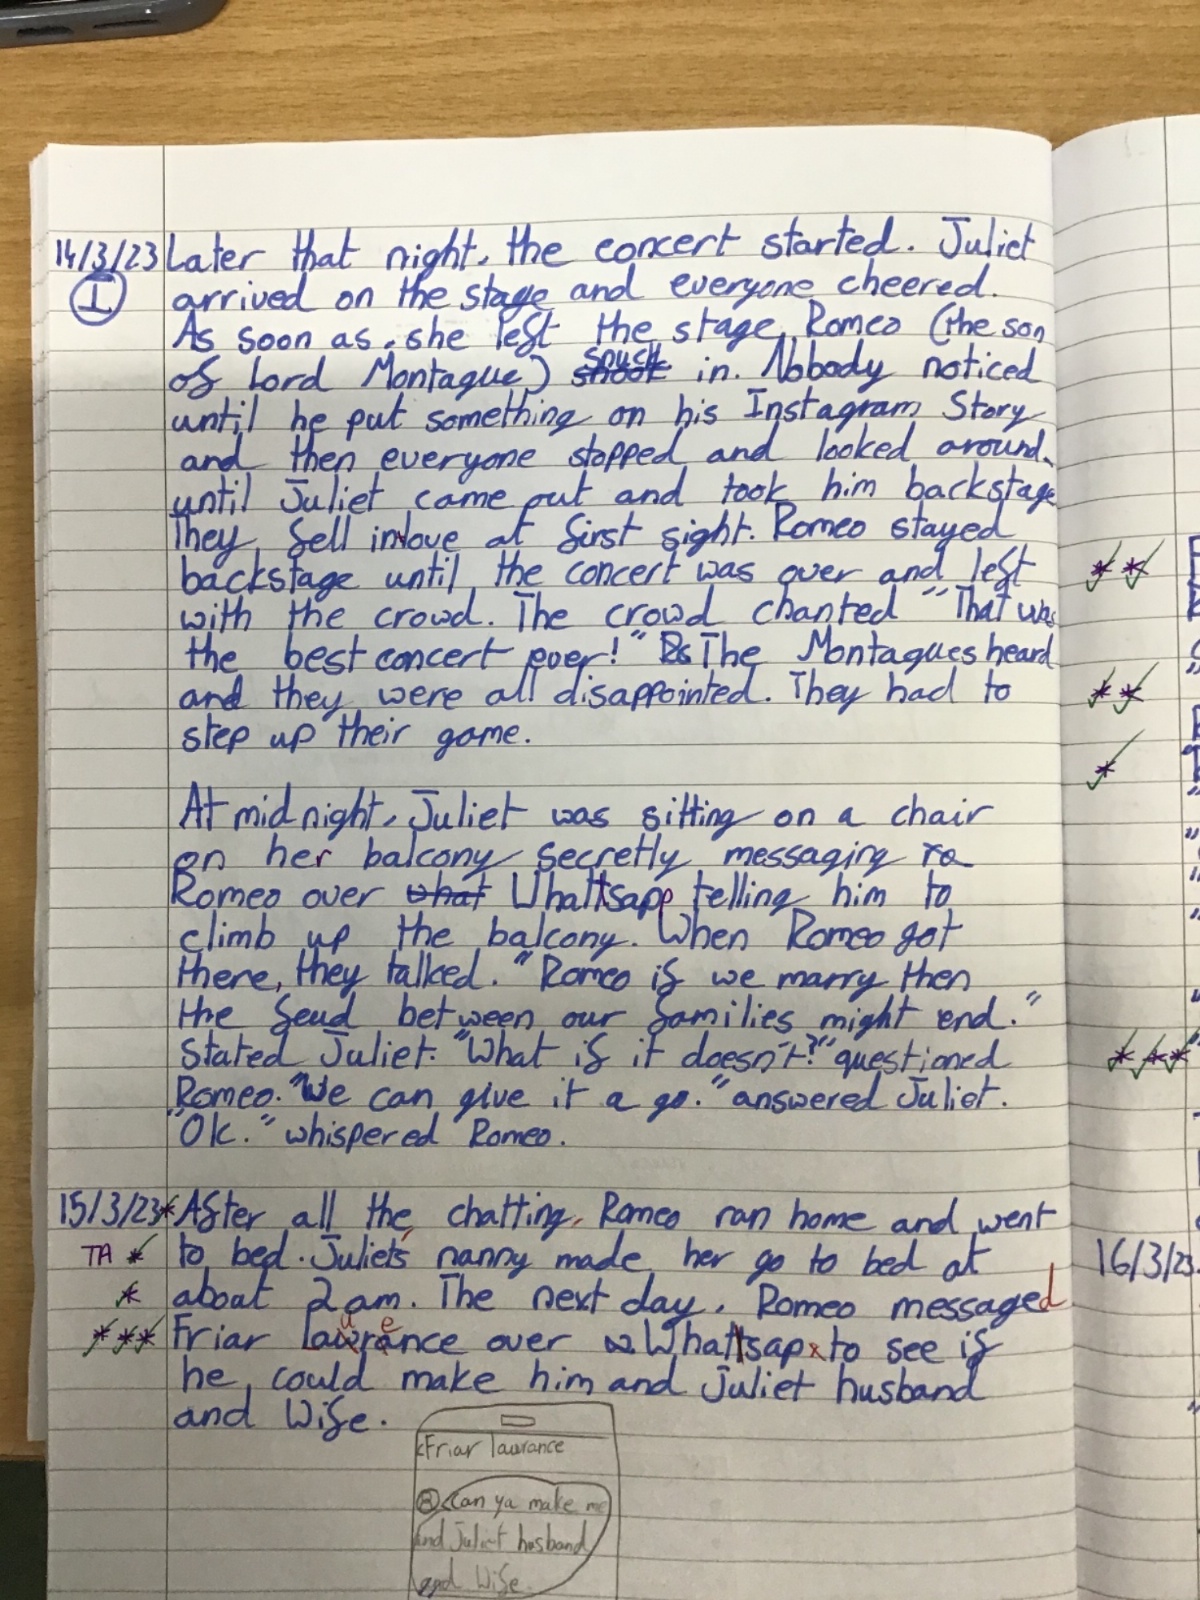 14/3/23 Later that night, the concert started. Juliet
I arrived on the stage and everyone cheered.
As soon as, she left the stage, Romeo (the son
of Lord Montague) snuck in. Nobody noticed
until he put something on his Instagram Story
and then everyone stopped and looked around.
until Juliet came out and took him backstage
They fell in love at first sight. Romeo stayed
backstage until the concert was over and left
with the crowd. The crowd chanted "That was
the best concert ever!" The Montagues heard
and they were all disappointed. They had to
step up their game.
At midnight, Juliet was sitting on a chair
on her balcony secretly messaging to
Romeo over what Whattsapp telling him to
climb up the balcony. When Romeo got
there, they talked. "Romeo if we marry then
the feud between our families might end."
Stated Juliet. "What if it doesn't?" questioned
Romeo. "We can give it a go." answered Juliet.
"Ok." whispered Romeo.
15/3/23 * After all the chatting, Romeo ran home and went
TA * to bed. Juliet's nanny made her go to bed at
* about 2am. The next day, Romeo messaged
*** Friar Lawrance over Whattsap to see if
he could make him and Juliet husband
and Wife.
<Friar lawrance
R <Can ya make me
and Juliet husband
and Wife.
16/3/23